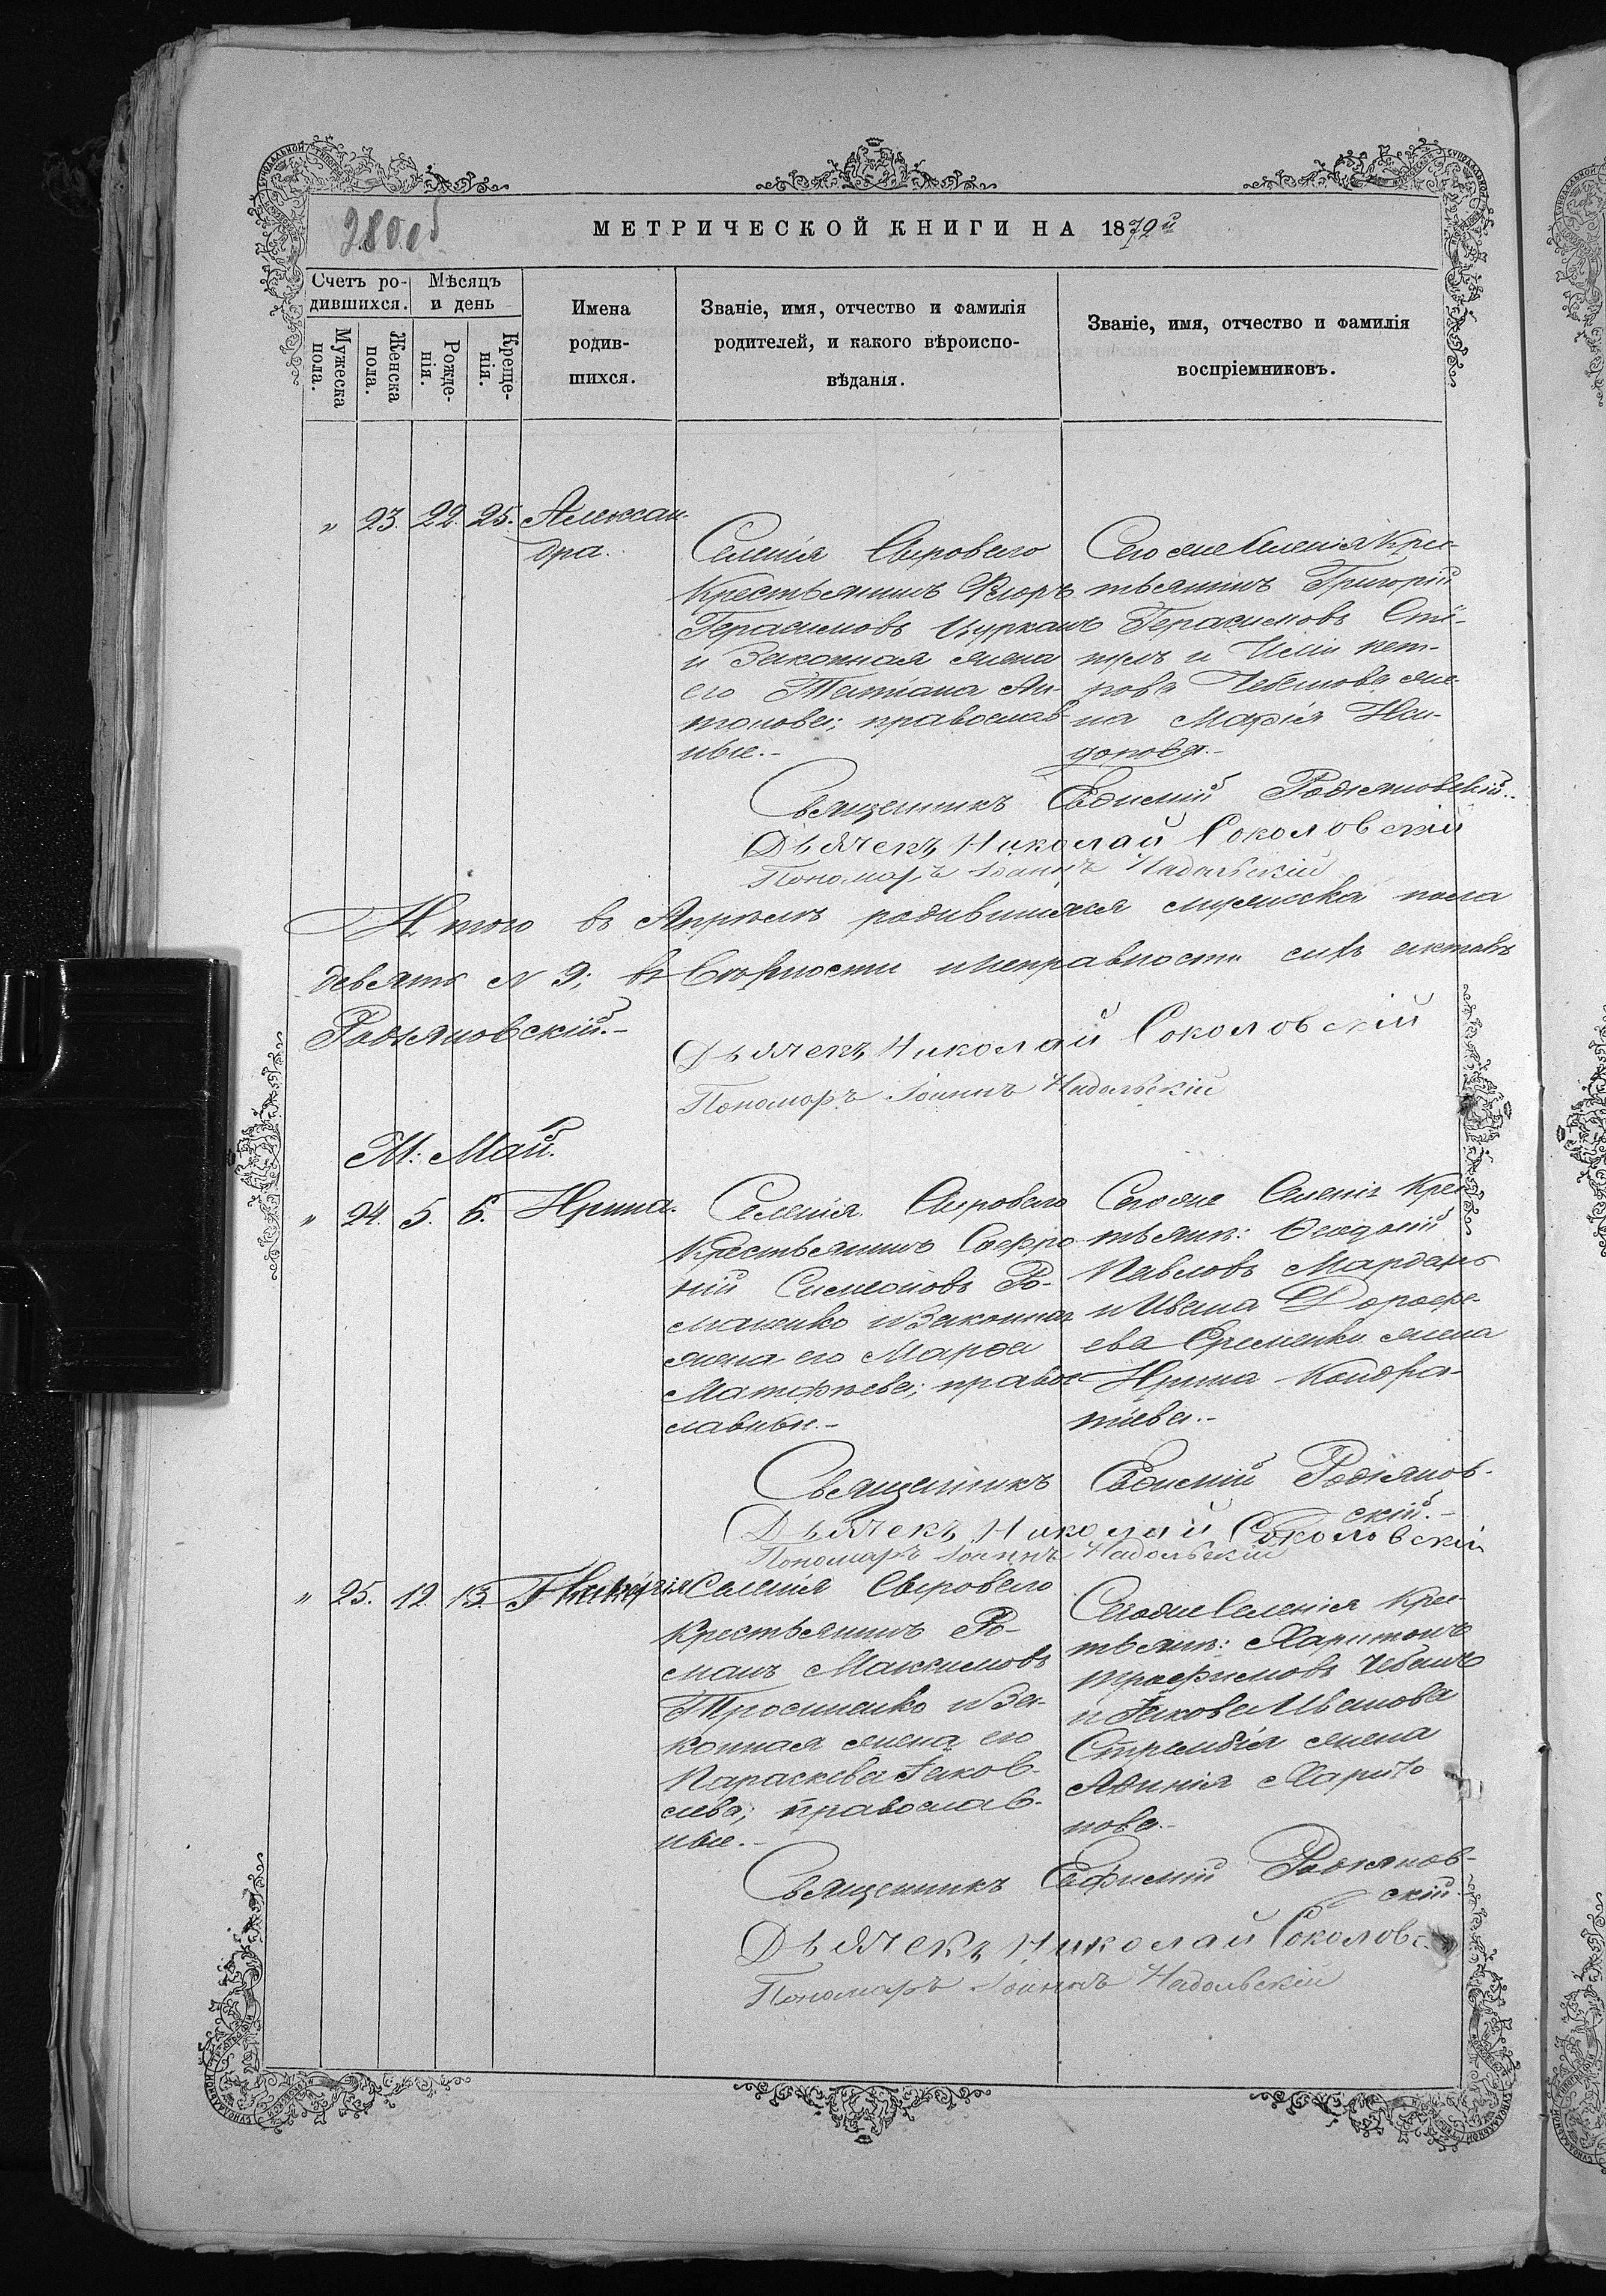 280 об
МЕТРИЧЕСКОЙ КНИГИ НА 1879й
Счетъ ро-
дившихся.
Мѣсяцъ
и день
Мужеска
пола.
Женска
пола.
Рожде-
нія.
Креще-
нія.
Имена
родив-
шихся.
Званіе, имя, отчество и фамилія
родителей, и какого вѣроиспо-
вѣданія.
Званіе, имя, отчество и фамилія
воспріемниковъ.
" 23. 22. 25. Алексан-
дра.
Селенія Сырового
Крестьянинъ
Герасимовъ Цурканъ
и Законная жена
его Татіана Ан-
тонова; православ-
ные.-
Того же Селенія Крес-
тьянинъ Григорій
Герасимовъ
и Пет-
рова же-
на Марія
Священникъ Евфимій
Дьячекъ Николай Соколовскій
Пономарь Іоаннъ Надольскій
Итого въ Апрѣлѣ родившихся женска пола
девять N 9; въ вѣрности и исправности сихъ актовъ
Дьячекъ Николай Соколовскій
Пономарь Іоаннъ Надольскій
М: Май.
" 24. 5. 6. Ирина.
Селенія Сырового
Крестьянинъ Софро-
ній Симеоновъ Ро-
маненко и Законная
жена его Марфа
Матфѣева; правос-
лавные.-
Того же Селенія Крес-
тьян: Феодосій
Павловъ Мардарь
и Ивана Дорофе-
ева Еременко жена
Ирина Кондра-
тіева.-
Священникъ Евфимій
скій.-
Дьячекъ Николай Соколовскій
Пономарь Іоаннъ Надольскій
" 25. 12. 13.
Селенія Сырового
Крестьянинъ Ро-
манъ Максимовъ
и За-
конная жена его
Параскева Іаков-
лева; православ-
ные.-
Того же Селенія Крес-
тьян: Харитонъ
Трофимовъ Чебанъ
и Іакова Иванова
жена
Харито-
нова.-
Священникъ Евфимій
скій.
Дьячекъ Николай Соколовс
Пономарь Іоаннъ Надольскій